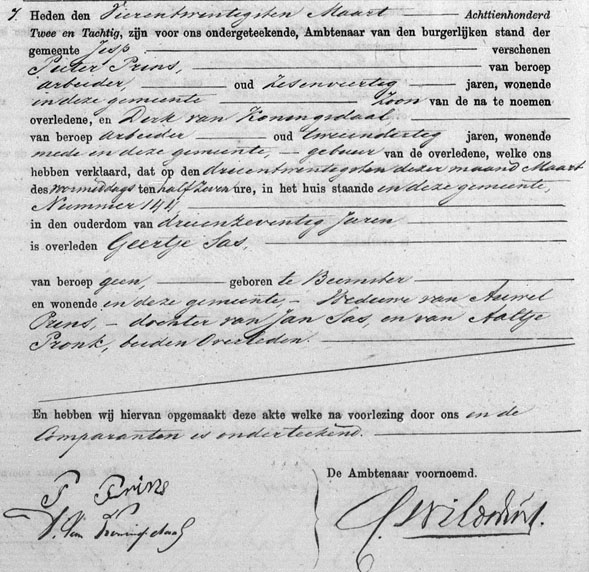 7. Heden den Vierentwintigsten Maart Achttienhonderd
Twee en Tachtig, zijn voor ons ondergeteekende, Ambtenaar van den burgerlijken stand der
gemeente Jisp verschenen
Pieter Prins, van beroep
arbeider, oud Zesenveertig jaren, wonende
in deze gemeente Zoon van de na te noemen
overledene, en Dirk van Koningsdaal,
van beroep arbeider oud tweeendertig jaren, wonende
mede in deze gemeente, gebuur van de overledene, welke ons
hebben verklaard, dat op den drieentwintigsten dezer maand Maart
des voormiddags ten half Zeven ure, in het huis staande in deze gemeente,
Nummer 141
in den ouderdom van drieenzeventig Jaren
is overleden Geertje Sas,
van beroep geen, geboren te Beemster
en wonende in deze gemeente, Weduwe van
Prins, dochter van Jan Sas, en van Aaltje
Pronk, beiden Overleden.
En hebben wij hiervan opgemaakt deze akte welke na voorlezing door ons en de
Comparanten is onderteekend.
De Ambtenaar voornoemd.
P Prins
D. van Koningsdaal